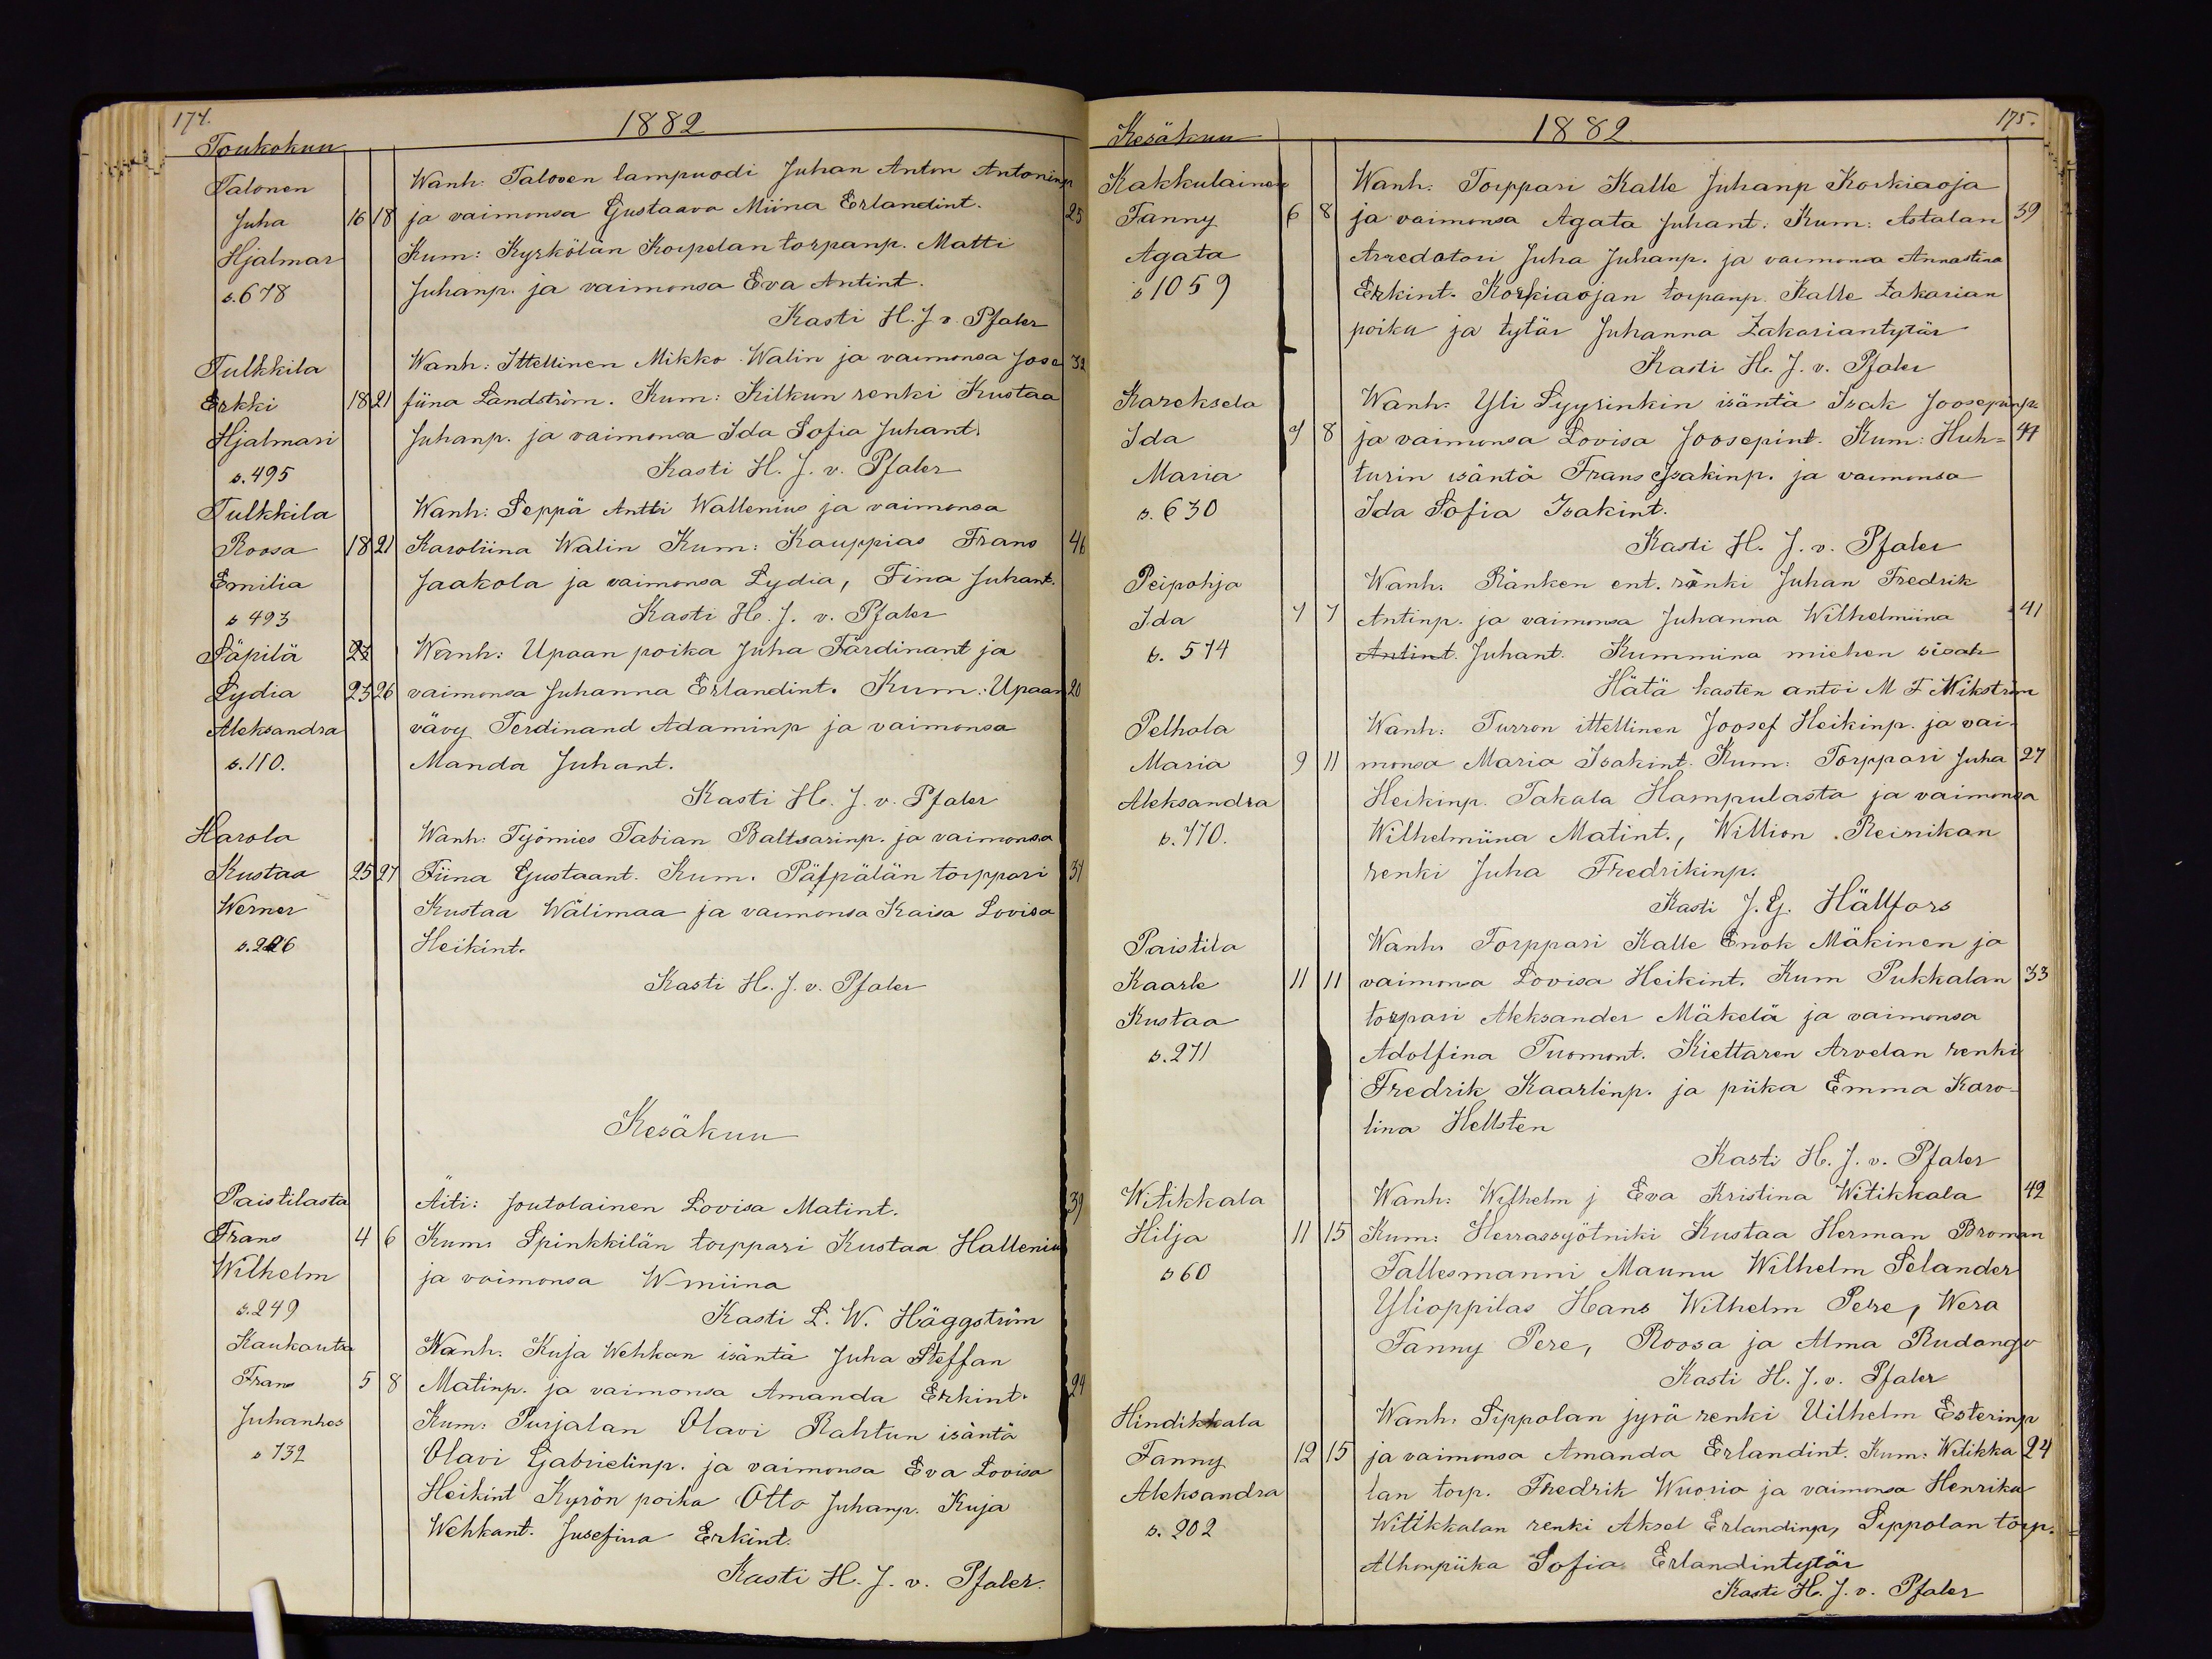 174.
1882
Toukokuu
Talonen
Wanh. Talosen lampuodi Juhan Anton Antoninp
Juha 16 18 ja vaimonsa Gustaava Miina Erlandint. 25
Hjalmar Kum: Kyrkölän Korpelan torpanp. Matti
s.678 Juhanp. ja vaimonsa Eva Antint.
Kasti H. J. v. Pfaler
Tulkkila Wanh: Ittellinen Mikko Walin ja vaimonsa Jose 32
Erkki 18 21 fiina Landström. Kum: Kilkun renki Kustaa
Hjalmari Juhanp. ja vaimonsa Ida Sofia Juhant.
s.495 Kasti H. J. v. Pfaler
Tulkkila Wanh: Seppä Antti Wallenius ja vaimonsa
Roosa 18 21 Karoliina Walin Kum: Kauppias Frans 46
Emilia Jaakola ja vaimonsa Lydia, Fina Juhant.
s 493 Kasti H. J. v. Pfaler
Säpilä 23 Wanh: Upaan poika Juha Färdinant ja
Lydia 23 26 vaimonsa Juhanna Erlandint. Kum: Upaan 20
Aleksandra vävy Ferdinand Adaminp ja vaimonsa
s.110. Manda Juhant.
Kasti H. J. v. Pfaler
Harola Wanh: Työmies Tabian Baltsarinp. ja vaimonsa
Kustaa 25 27 Fiina Gustaant. Kum. Päfpälän torppari 31
Werner Kustaa Wälimaa ja vaimonsa Kaisa Lovisa
s.226 Heikint.
Kasti H. J. v. Pfaler
Kesäkuu
Paistilasta Äiti: Joutolainen Lovisa Matint. 39
Frans 4 6 Kum: Spinkkilän torppari Kustaa Hallenius
Wilhelm ja vaimonsa W-miina
s.249 Kasti L. W. Häggström
Kaukautsa Wanh. Kuja Wehkan isäntä Juha Steffan
Frans 5 8 Matinp. ja vaimonsa Amanda Erkint. 24
Juhannes Kum: Purjalan Olavi Rahtun isäntä
s 732 Olavi Gabrielinp. ja vaimonsa Eva Lovisa
Heikint Kyrön poika Otto Juhanp. Kuja
Wehkant. Jusefina Erkint.
Kasti H. J. v. Pfaler.
175.
1882
Kesäkuu
Kakkulainen Wanh: Torppari Kalle Juhanp Korkiaoja
Fanny 6 8 ja vaimonsa Agata Juhant. Kum: Astalan 39
Agata Arredatori Juha Juhanp. ja vaimonsa Annastina
s 1059 Erkint. Korkiaojan torpanp. Kalle Zakarian
poika ja tytär Juhanna Zakariantytär
Kasti H. J. v. Pfaler
Kareksela Wanh. Yli Syyrinkin isäntä Isak Joosepinp
Ida 7 8 ja vaimonsa Lovisa Joosepint. Kum: Huh= 44
Maria turin isäntä Frans Isakinp. ja vaimonsa
s. 630 Ida Sofia Isakint.
Kasti H. J. v. Pfaler
Peipohja Wanh. Ränken ent. renki Juhan Fredrik
Ida 7 7 Antinp. ja vaimonsa Juhanna Wilhelmiina 41
s. 574 Antint. Juhant. Kummina miehen sisar
Hätä kasten antoi M F Wikström
Pelhola Wanh: Turron ittellinen Joosef Heikinp. ja vai-
Maria 9 11 monsa Maria Isakint. Kum: Torppari Juha 27
Aleksandra Heikinp. Takala Hampulasta ja vaimonsa
s.770. Wilhelmiina Matint., Willion Reinikan
renki Juha Fredrikinp.
Kasti J. G. Hällfors
Paistila Wanh. Torppari Kalle Enok Mäkinen ja
Kaarle 11 11 vaimonsa Lovisa Heikint. Kum Pukkalan 33
Kustaa torpari Aleksander Mäkelä ja vaimonsa
s.271 Adolfina Tuomont. Kiettaren Arvelan renki
Fredrik Kaarlinp. ja piika Emma Karo-
lina Hellsten
Kasti H. J. v. Pfaler
Witikkala Wanh: Wilhelm j Eva Kristina Witikkala 42
Hilja 11 15 Kum: Herrassyötniki Kustaa Herman Broman
s 60 Fallesmanni Maunu Wilhelm Selander
Ylioppilas Hans Wilhelm Pere, Wera
Fanny Pere, Roosa ja Alma Rudango
Kasti H. J. v. Pfaler
Hindikkala Wanh. Sippolan jyvä renki Vilhelm Esterinp
Fanny 12 15 ja vaimonsa Amanda Erlandint. Kum: Witikka 24
Aleksandra lan torp. Fredrik Wuorio ja vaimonsa Henrika
s. 202 Witikkalan renki Aksel Erlandinp, Sippolan torp.
Alhonpiika Sofia Erlandintytär
Kasti H. J. v. Pfaler